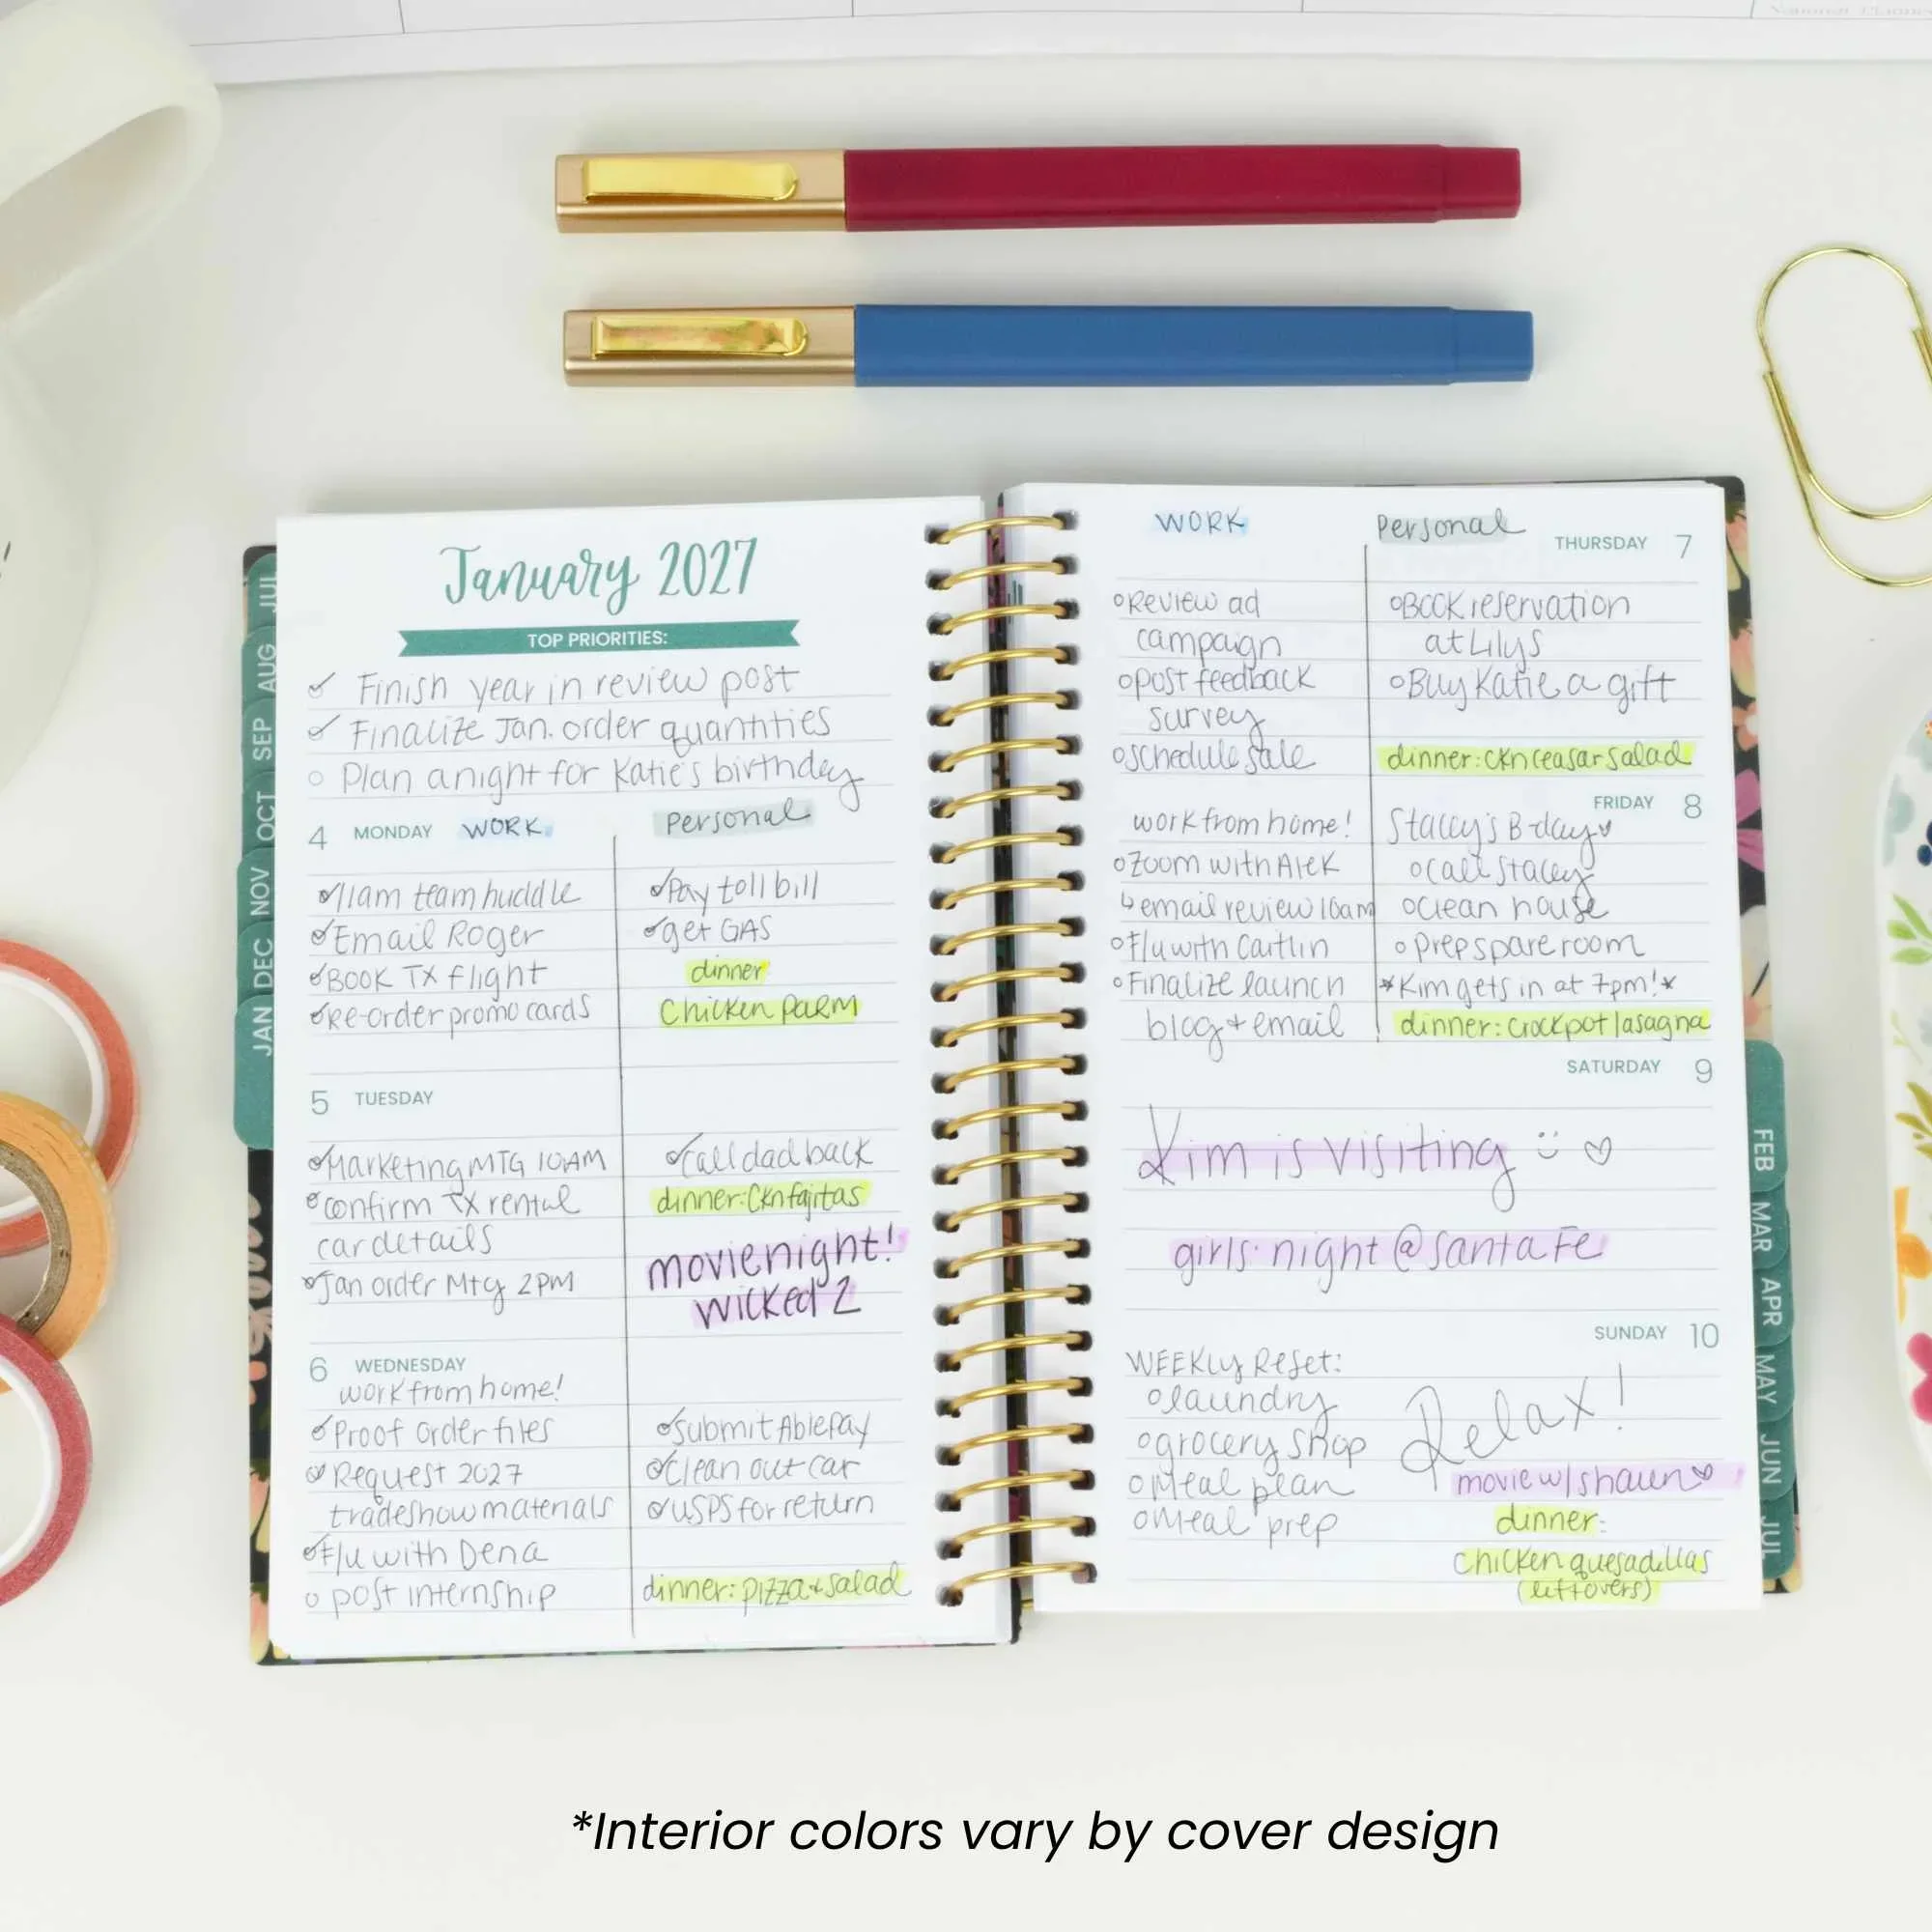 National Planner
JUL
AUG
SEP
OCT
NOV
DEC
JAN
January 2027
TOP PRIORITIES:
Finish year in review post
Finalize Jan. order quantities
Plan a night for Katie's birthday
4 MONDAY WORK Personal
11am team huddle
Email Roger
BOOK TX flight
Re-order promo cards
Pay toll bill
get GAS
dinner
Chicken PARM
5 TUESDAY
Marketing MTG 10AM
confirm TX rental
car details
Jan order Mtg 2PM
Call dad back
dinner: Ckn fajitas
movie night!
wicked 2
6 WEDNESDAY
work from home!
Proof order files
Request 2027
tradeshow materials
F/u with Dena
post internship
submit AblePay
Clean out car
USPS for return
dinner: pizza + salad
WORK Personal THURSDAY 7
Review ad
campaign
post feedback
survey
schedule sale
Book reservation
at Lilys
Buy Katie a gift
dinner: ckn ceasar salad
FRIDAY 8
work from home!
Zoom with Alek
↳ email review 10am
F/u with Caitlin
Finalize launch
blog + email
Stacey's B-day ♥
call Stacey
clean house
prep spare room
*Kim gets in at 7pm!*
dinner: crockpot lasagna
SATURDAY 9
Kim is visiting :) ♡
girls' night @ Santa Fe
SUNDAY 10
WEEKLY Reset:
laundry
grocery shop
Meal plan
Meal prep
Relax!
movie w/ shaun ♡
dinner:
Chicken quesadillas
(leftovers)
FEB
MAR
APR
MAY
JUN
JUL
*Interior colors vary by cover design